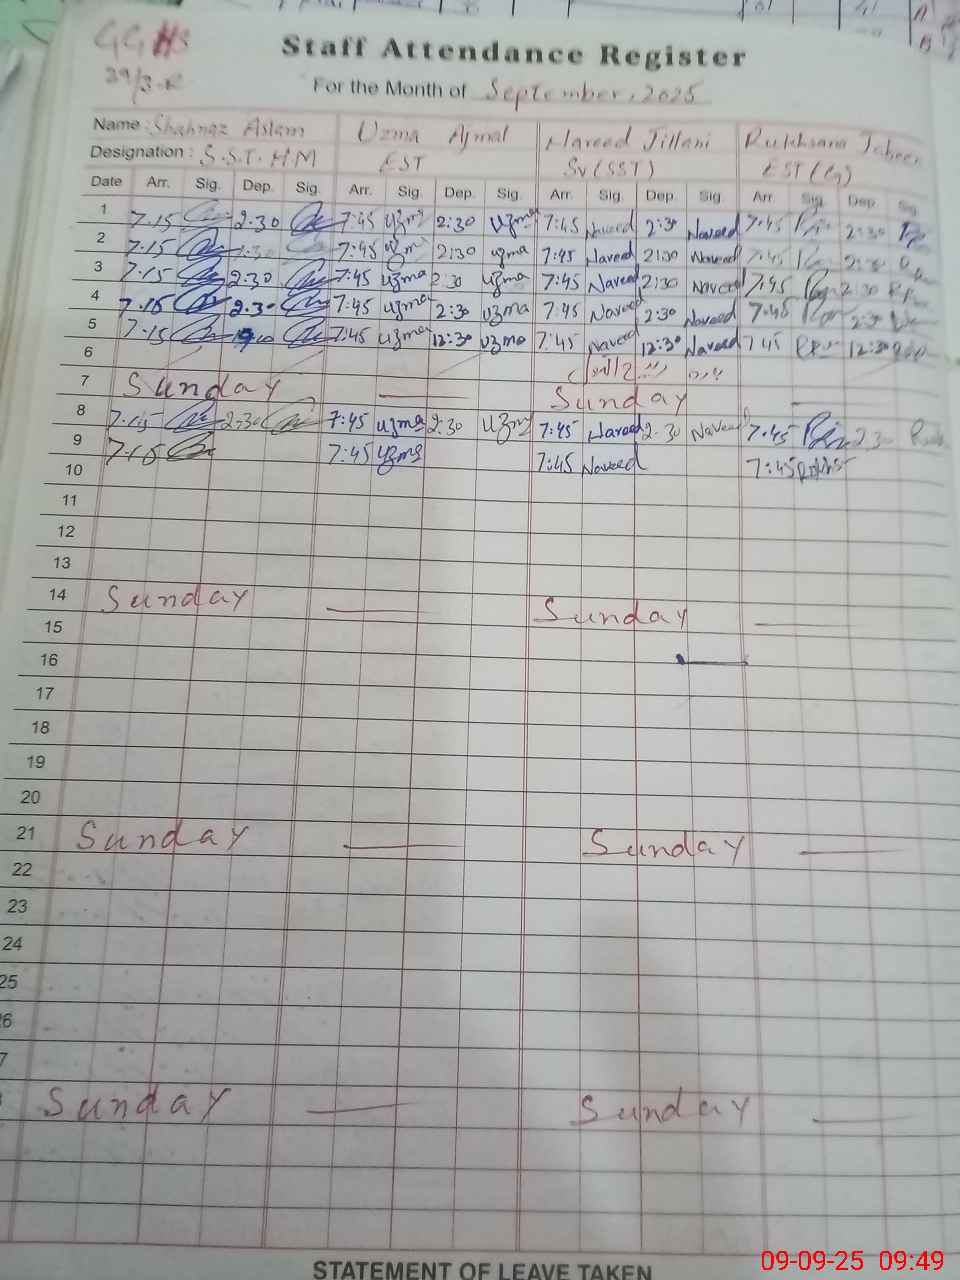 GGHS
39/3-R
Staff Attendance Register
For the Month of September, 2025
Name : Shahnaz Aslam Uzma Ajmal Naveed Jillani Rukhsana
Designation : S.S.T. H.M EST Sv (SST) EST
Date Arr. Sig. Dep. Sig. Arr. Sig. Dep. Sig. Arr. Sig. Dep. Sig. Arr Sig. Dep. Sig.
1 7.15 2:30 7:45 uzma 2:30 uzma 7:45 Naveed 2:30 Naveed 7:45 2:30
2 7.15 7:45 uzma 2:30 uzma 7:45 Naveed 2:30 Naveed 7:45 2:30
3 7.15 2.30 7:45 uzma 2:30 uzma 7:45 Naveed 2:30 Naveed 7:45 2:30
4 7.15 2.30 7:45 uzma 2:30 uzma 7:45 Naveed 2:30 Naveed 7:45 2:30
5 7.15 7:45 uzma 12:30 uzma 7:45 Naveed 12:30 Naveed 7 45 12:30
6
7 Sunday Sunday
8 7.15 2.30 7:45 uzma 2:30 uzma 7:45 Naveed 2:30 Naveed 7:45 2:30
9 7.15 7:45 uzma 7:45 Naveed 7:45
10
11
12
13
14 Sunday Sunday
15
16
17
18
19
20
21 Sunday Sunday
22
23
24
25
6
7
Sunday Sunday
STATEMENT OF LEAVE TAKEN
09-09-25 09:49